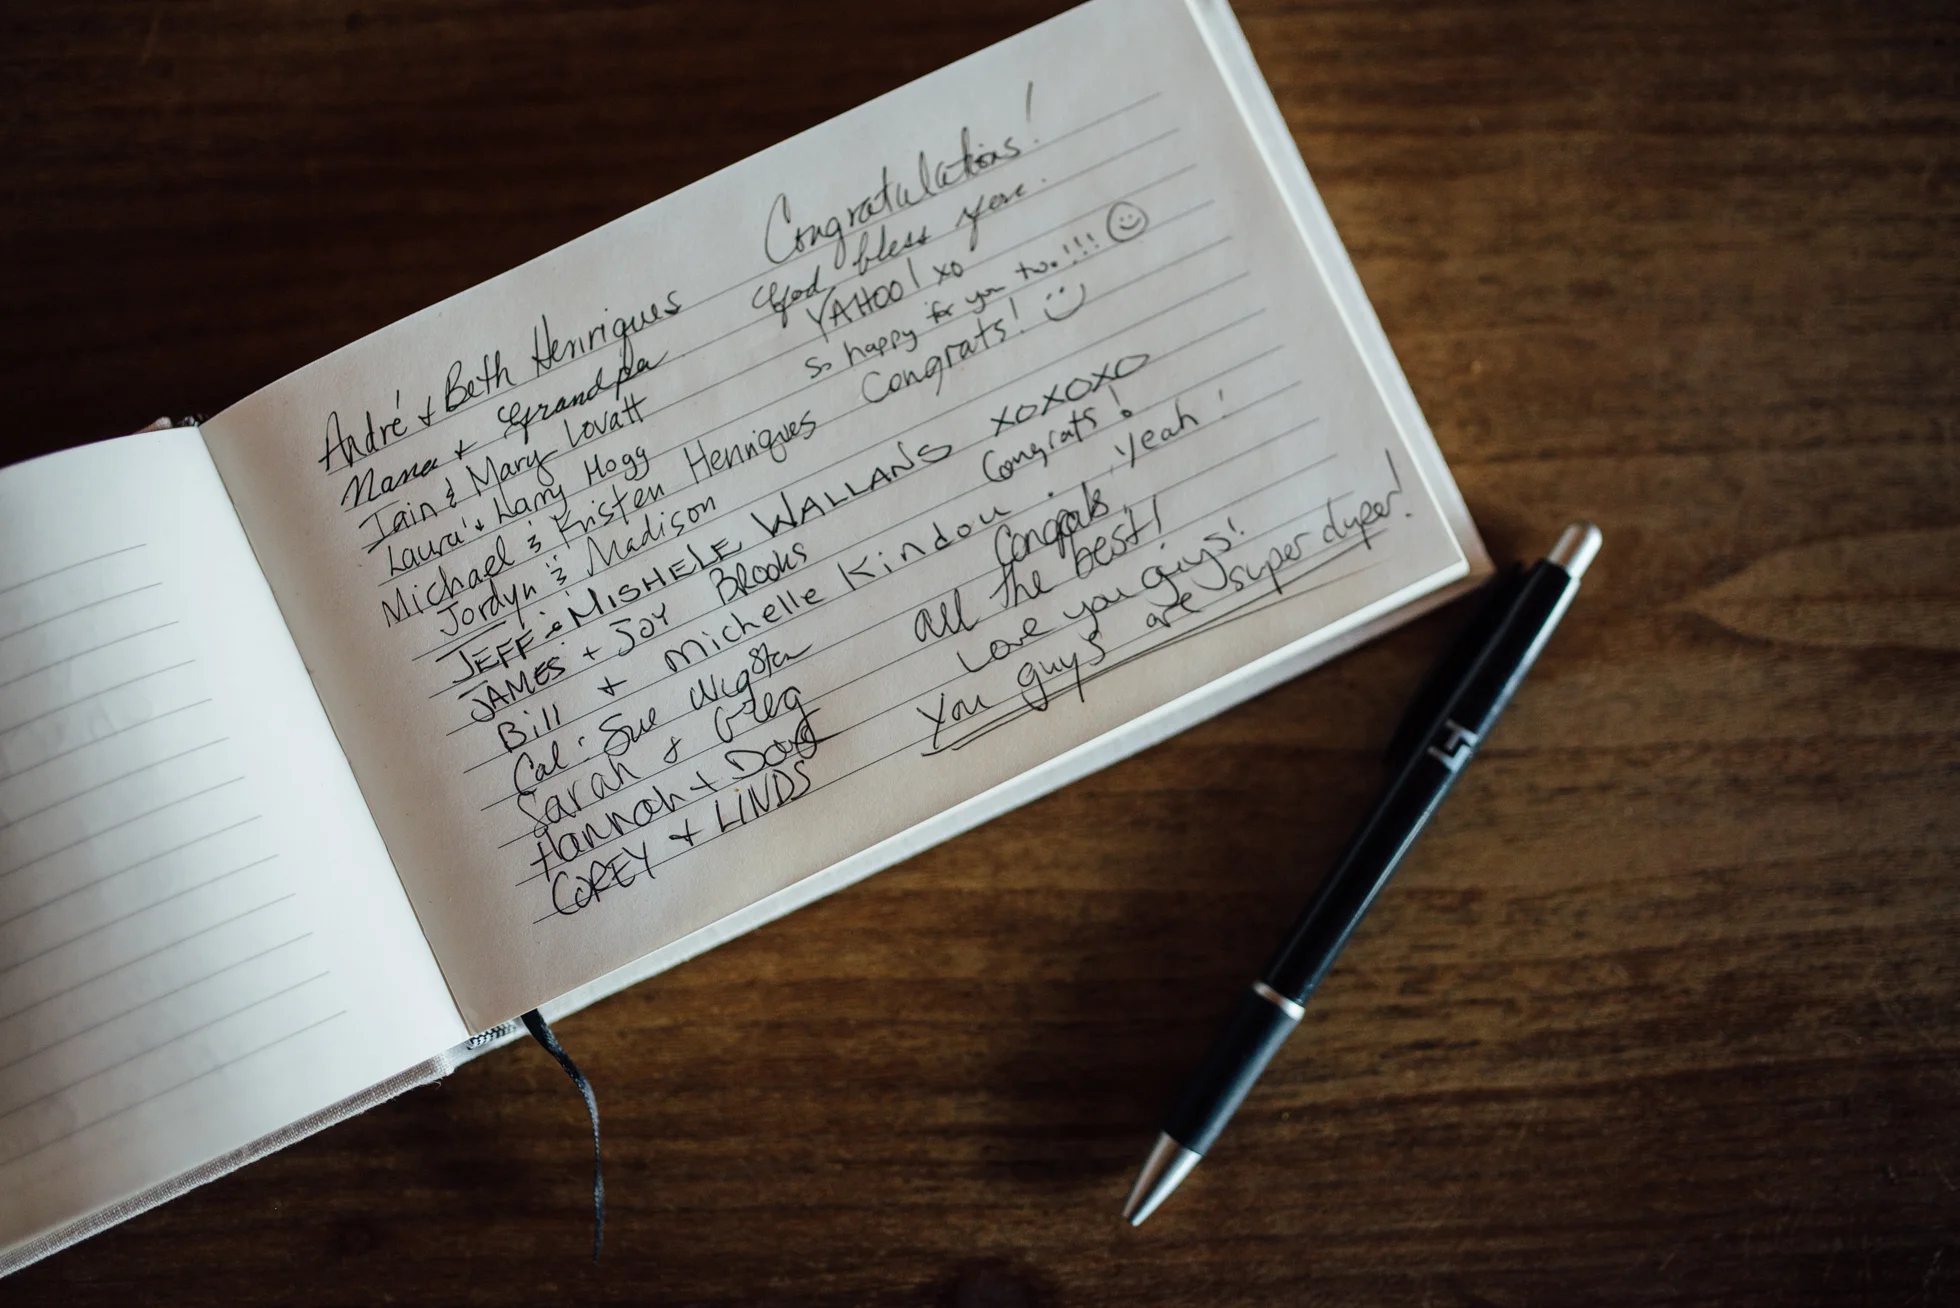 André & Beth Henriques Congratulations!
Nana + Grandpa God bless you.
Iain & Mary Lovatt YAHOO! xo
Laura & Larry Hogg So happy for you two!!!
Michael & Kristen Henriques Congrats!
Jordyn & Madison
JEFF & MISHELE WALLANS XOXOXO
JAMES + JOY Brooks Congrats!
Bill + Michelle Kindou Yeah!
Cal & Sue Wigston Congrats,
Sarah & Greg all the best!
Hannah + Doug Love you guys!
COREY & LINDS You guys are super duper!